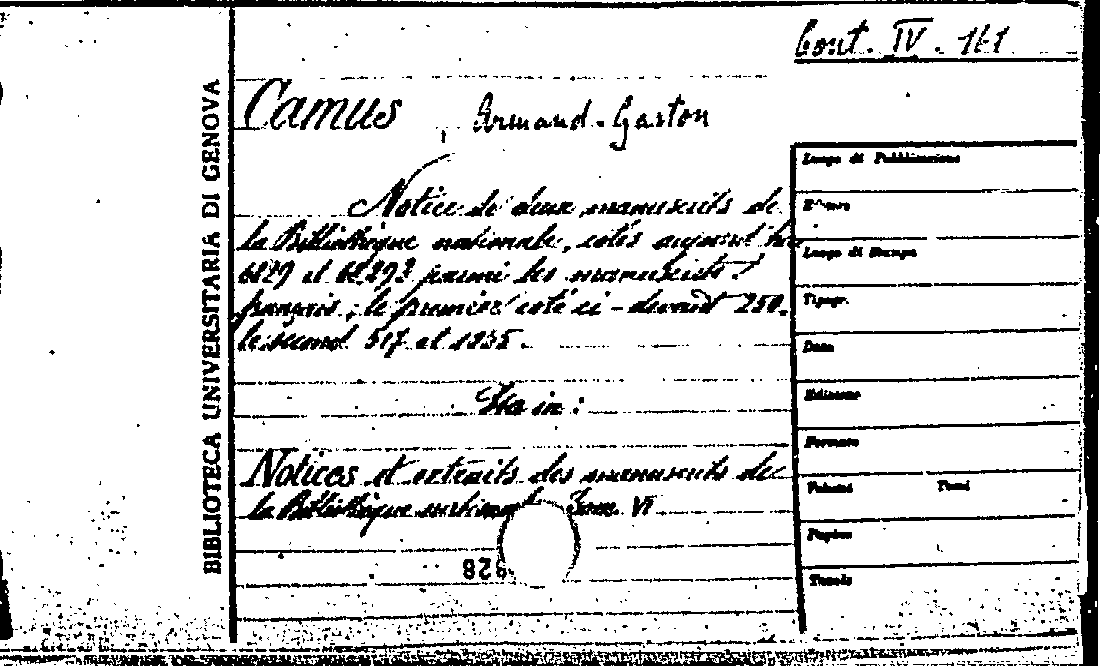 Cont. IV. 161
Camus Armand-Gaston
Notice de deux manuscrits de
la Bibliothèque nationale, cotés aujourd'hui
6829 et 6829² parmi les manuscrits
français; le premier coté ci-devant 250.
le second 517 et 1835.
Sta in:
Notices et extraits des manuscrits de
la Bibliothèque nationale Tom. VI
928
BIBLIOTECA UNIVERSITARIA DI GENOVA
Luogo di Pubblicazione
Editore
Luogo di Stampa
Tipogr.
Data
Edizione
Formato
Volumi Tomi
Pagine
Tavole